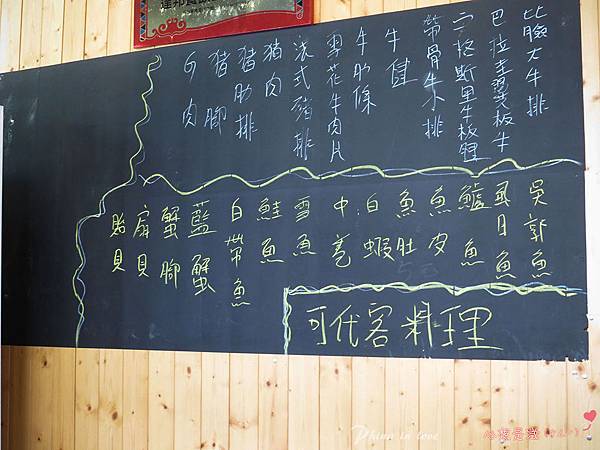 比臉大牛排
巴拉圭翼板牛
安格斯黑牛板腱
帶骨牛小排
牛腱
牛肋條
雪花牛肉片
法式豬排
豬肉
豬肋排
豬腳
白肉
吳郭魚
虱目魚
鱸魚
魚皮
魚肚
白蝦
中卷
雪魚
鮭魚
白帶魚
藍蟹
蟹腳
扇貝
貽貝
可代客料理
Phinn in love